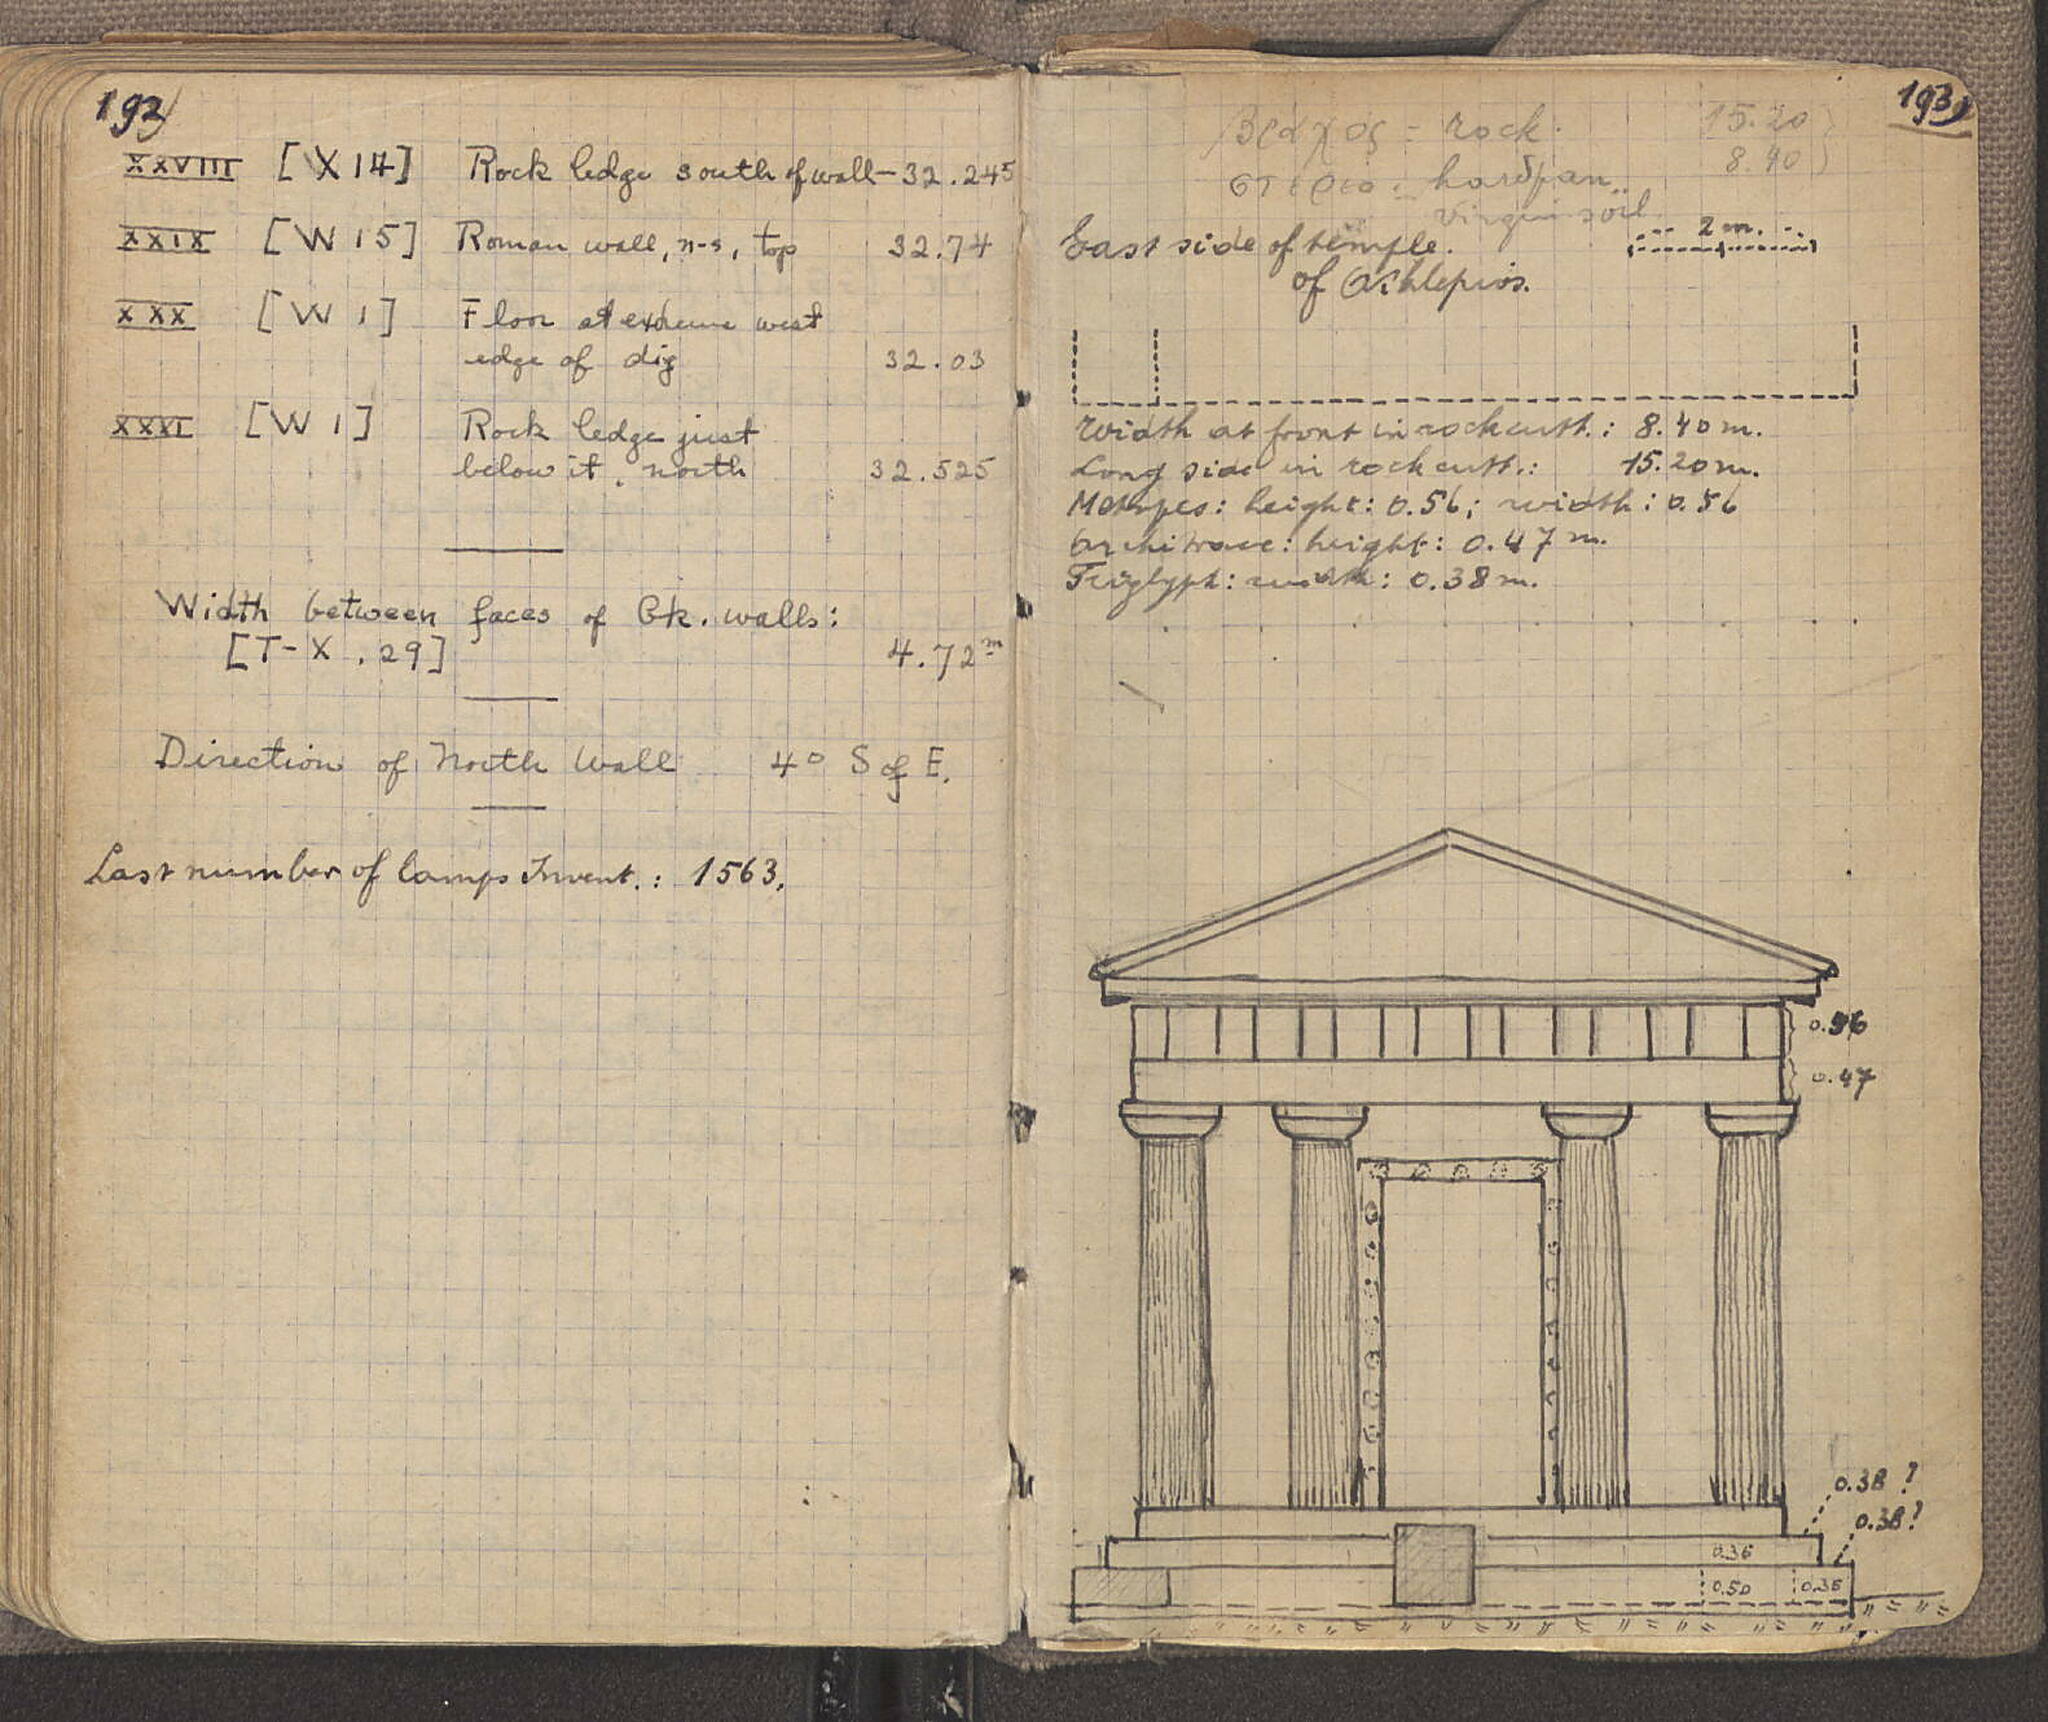 192
XXVIII [X 14] Rock ledge south of wall – 32.245
XXIX [W 15] Roman wall, n-s, top 32.74
XXX [W 1] Floor at extreme west
edge of dig 32.03
XXXI [W 1] Rock ledge just
below it, north 32.525
Width between faces of Gk. walls:
[T-X, 29] 4.72 m
Direction of North Wall 4° S of E.
Last number of lamps Invent.: 1563.
193
βράχος = rock. 15.20
στερεο = hardpan 8.40
virgin soil
East side of temple 2 m.
of Asklepios.
Width at front in rockcutt.: 8.40 m.
Long side in rockcutt.: 15.20 m.
Metopes: height: 0.56; width: 0.56
Architrave: height: 0.47 m.
Triglyph: width: 0.38 m.
0.56
0.47
0.38?
0.38?
0.36
0.50 0.35